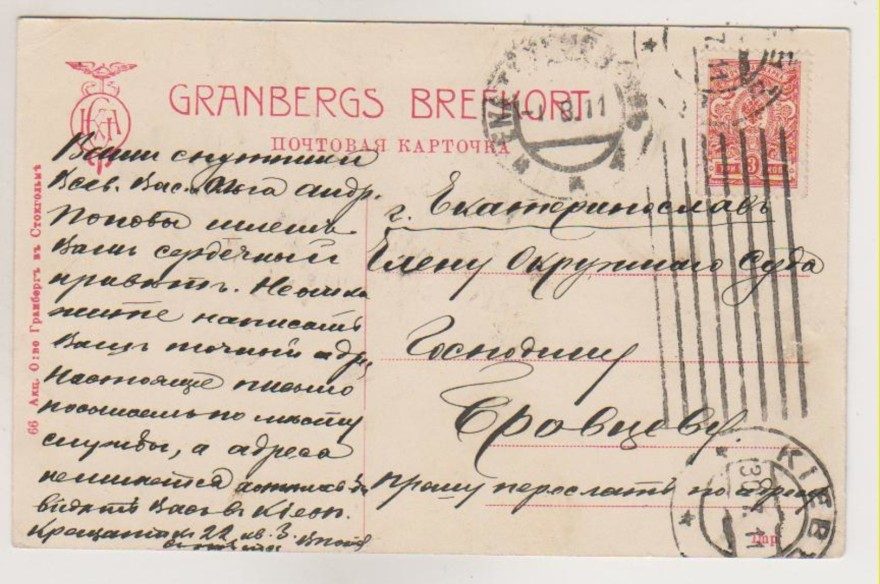 GRANBERGS BREFKORT
ПОЧТОВАЯ КАРТОЧКА
66 Акц. О-во Гранбергъ въ Стокгольмѣ
Ваши спутники
Всев. Вас. Ольга андр.
Поповы шлемъ
Вамъ сердечный
привѣтъ. Не
написать
Вашъ точный адр.
Настоящее письмо
по мѣсту
службы, а адреса
видѣть Васъ в Кіевѣ.
22 кв. 3.
г. Екатеринославъ
Члену Окружнаго Суда
Господину
Бровцеву.
Прошу переслать по
8.11
КІЕВЪ
30.7.11
3